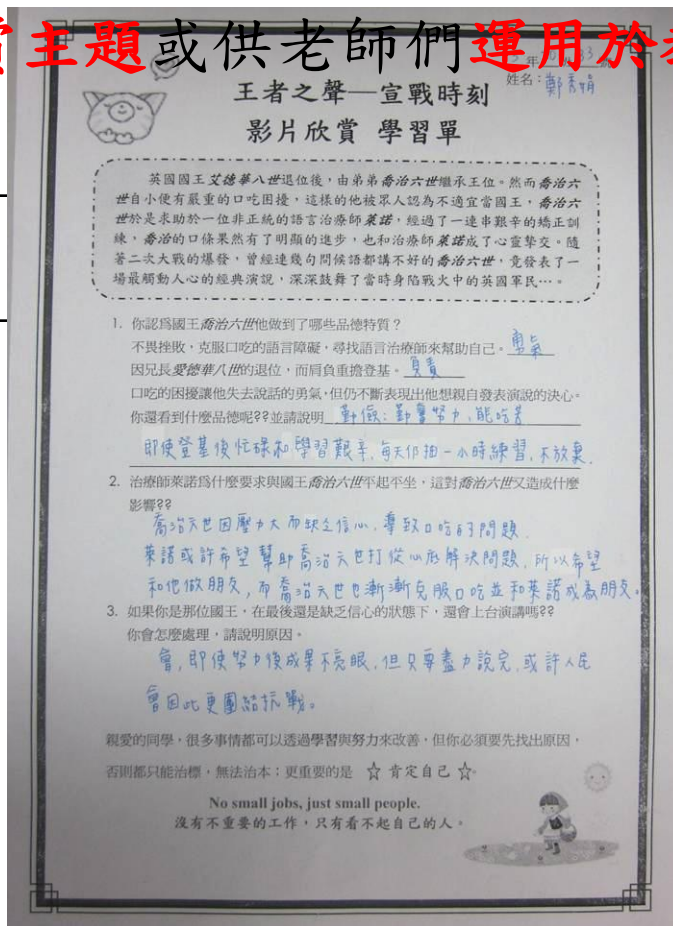 主題或供老師們運用於
年
姓名：鄭秀娟
王者之聲─宣戰時刻
影片欣賞 學習單
英國國王艾德華八世退位後，由弟弟喬治六世繼承王位。然而喬治六
世自小便有嚴重的口吃困擾，這樣的他被眾人認為不適宜當國王，喬治六
世於是求助於一位非正統的語言治療師萊諾，經過了一連串艱辛的矯正訓
練，喬治的口條果然有了明顯的進步，也和治療師萊諾成了心靈摯交。隨
著二次大戰的爆發，曾經連幾句問候語都講不好的喬治六世，竟發表了一
場最觸動人心的經典演說，深深鼓舞了當時身陷戰火中的英國軍民…。
1. 你認為國王喬治六世他做到了哪些品德特質？
不畏挫敗，克服口吃的語言障礙，尋找語言治療師來幫助自己。勇氣
因兄長愛德華八世的退位，而肩負重擔登基。負責
口吃的困擾讓他失去說話的勇氣，但仍不斷表現出他想親自發表演說的決心。
你還看到什麼品德呢??並請說明 勤儉：勤奮努力，能吃苦
即使登基後忙碌和學習艱辛，每天仍抽一小時練習，不放棄.
2. 治療師萊諾為什麼要求與國王喬治六世平起平坐，這對喬治六世又造成什麼
影響??
喬治六世因壓力大而缺乏信心，導致口吃的問題.
萊諾或許希望幫助喬治六世打從心底解決問題，所以希望
和他做朋友，而喬治六世也漸漸克服口吃並和萊諾成為朋友。
3. 如果你是那位國王，在最後還是缺乏信心的狀態下，還會上台演講嗎??
你會怎麼處理，請說明原因。
會，即使努力後成果不亮眼，但只要盡力說完，或許人民
會因此更團結抗戰。
親愛的同學，很多事情都可以透過學習與努力來改善，但你必須要先找出原因，
否則都只能治標，無法治本；更重要的是 ☆ 肯定自己 ☆。
No small jobs, just small people.
沒有不重要的工作，只有看不起自己的人。